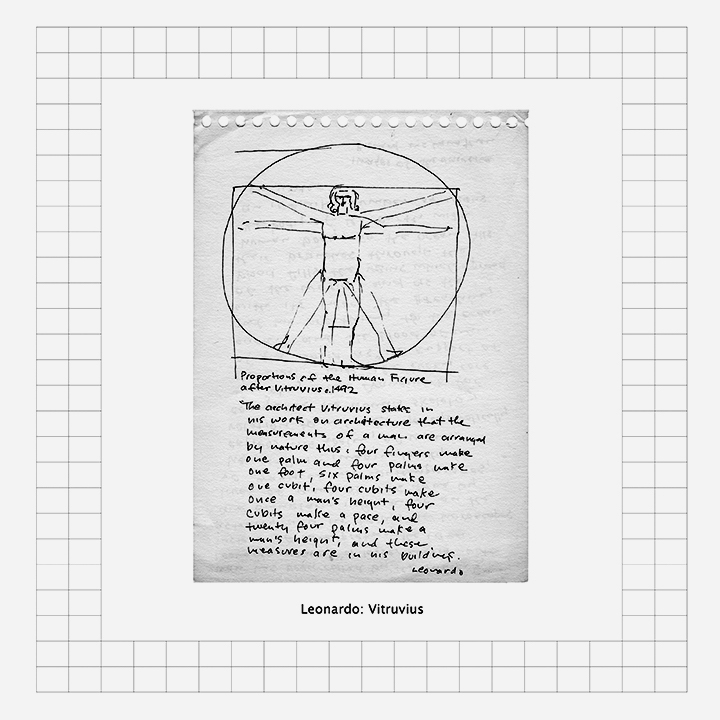 Proportions of the Human Figure
after Vitruvius c.1492
"The architect Vitruvius states in
his work on architecture that the
measurements of a man are arranged
by nature thus: four fingers make
one palm and four palms make
one foot, six palms make
one cubit, four cubits make
once a man's height, four
cubits make a pace, and
twenty four palms make a
man's height, and these
measures are in his buildings.
Leonardo
Leonardo: Vitruvius